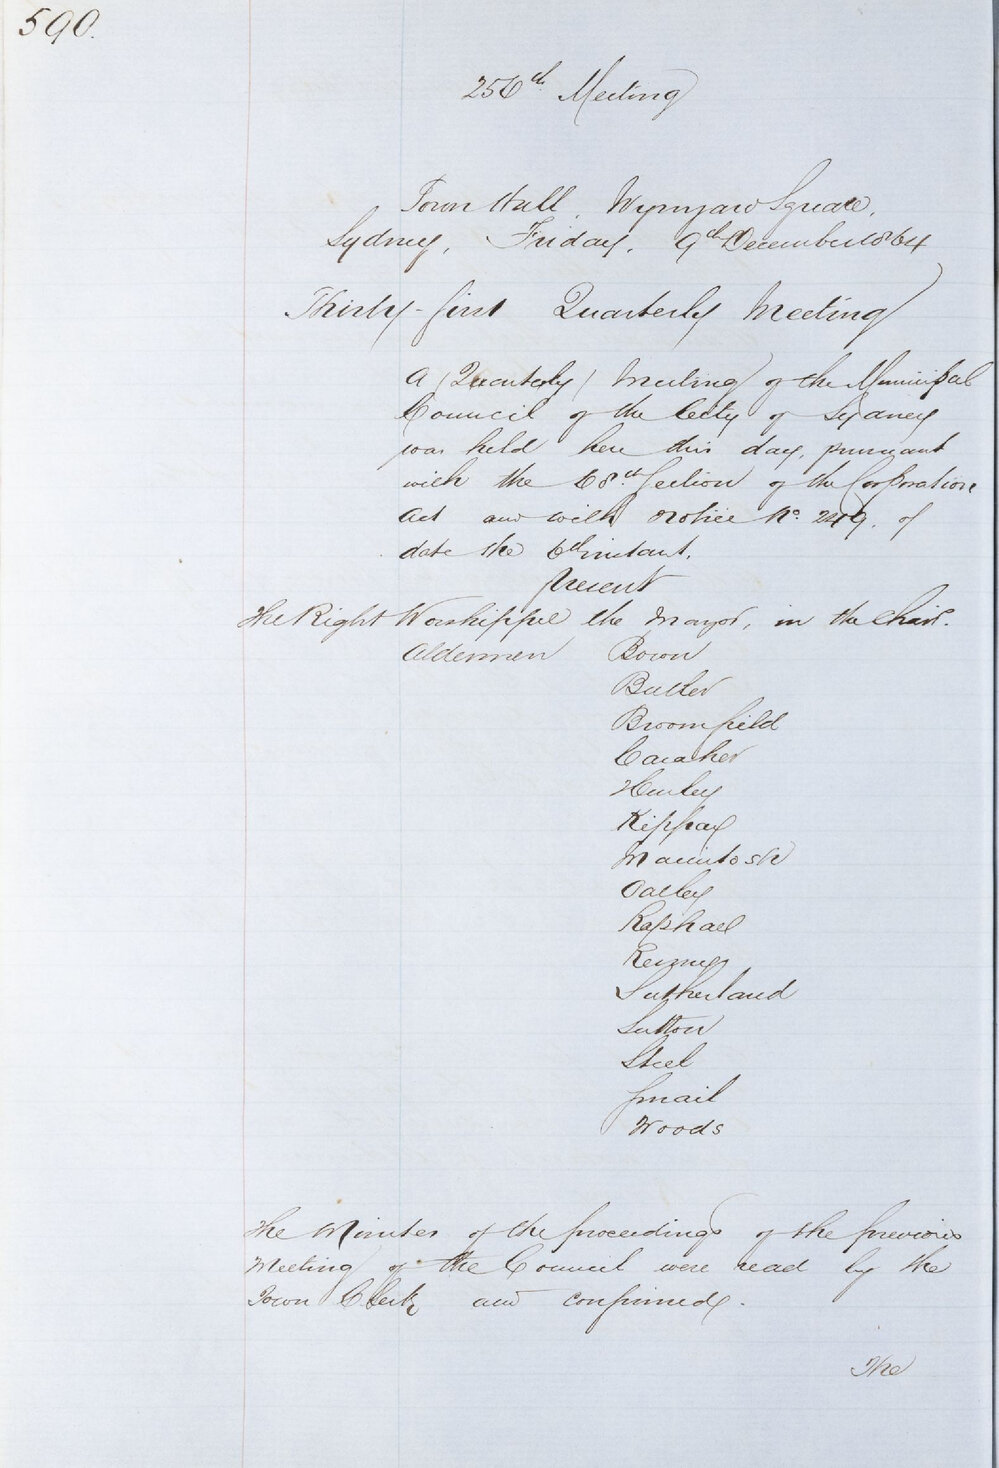 590.
256th Meeting
Town Hall, Wynyard Square,
Sydney, Friday, 9th December 1864
Thirty-first Quarterly Meeting
A (Quarterly) Meeting of the Municipal
Council of the City of Sydney
was held here this day, pursuant
with the 68th Section of the Corporation
Act and with Notice No. 249, of
date the 6th instant.
Present
The Right Worshipful the Mayor, in the Chair.
Aldermen Bown
Butler
Broomfield
Caraher
Hurley
Kippax
Macintosh
Oatley
Raphael
Renny
Sutherland
Sutton
Steel
Smail
Woods
The Minutes of the proceedings of the previous
Meeting of the Council were read by the
Town Clerk and confirmed.
The